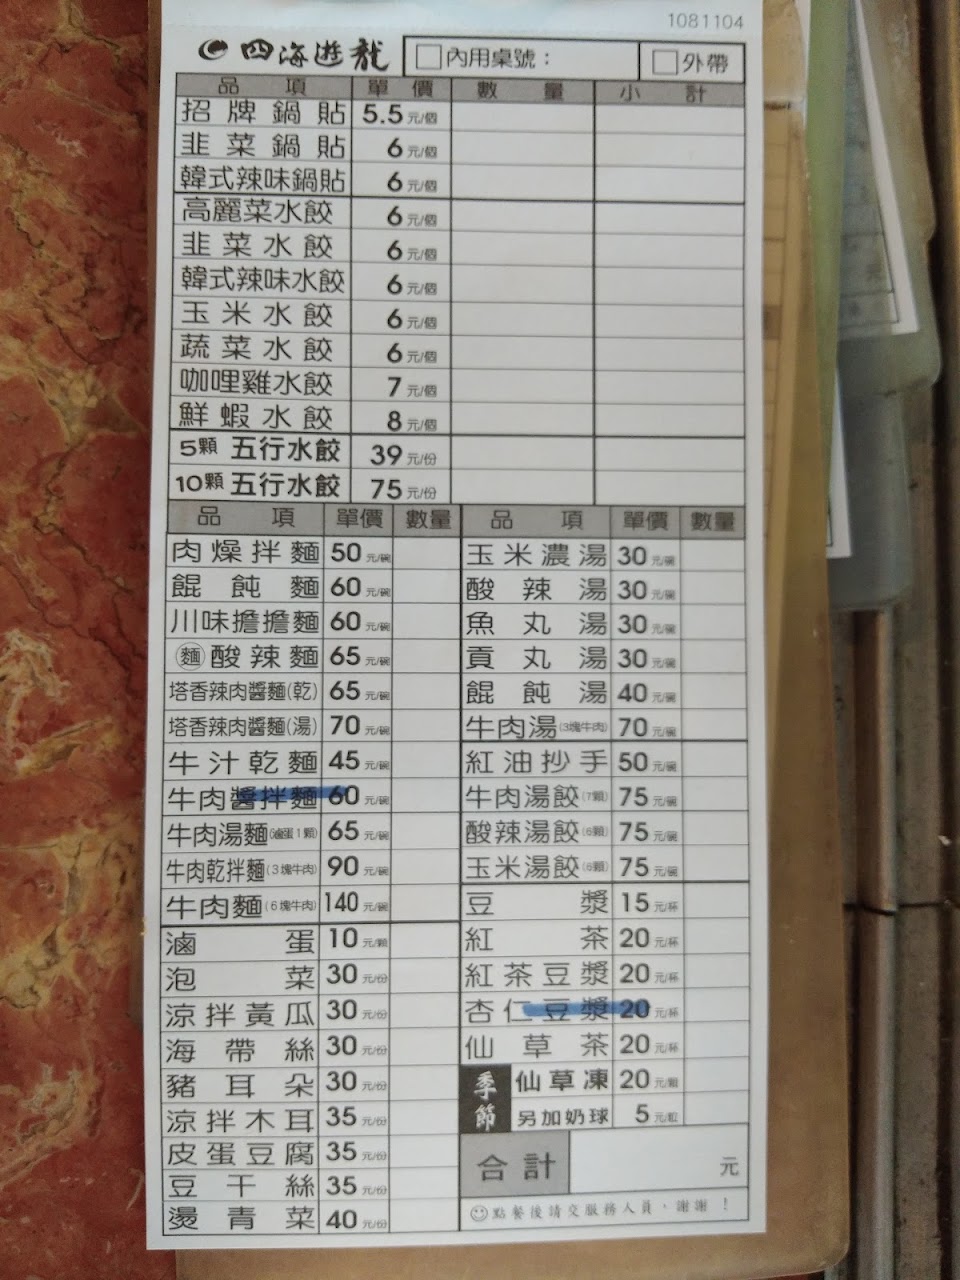 1081104
四海遊龍 □內用桌號： □外帶
品項 單價 數量 小計
招牌鍋貼 5.5元/個
韭菜鍋貼 6元/個
韓式辣味鍋貼 6元/個
高麗菜水餃 6元/個
韭菜水餃 6元/個
韓式辣味水餃 6元/個
玉米水餃 6元/個
蔬菜水餃 6元/個
咖哩雞水餃 7元/個
鮮蝦水餃 8元/個
5顆 五行水餃 39元/份
10顆 五行水餃 75元/份
品項 單價 數量
肉燥拌麵 50元/碗
餛飩麵 60元/碗
川味擔擔麵 60元/碗
麵酸辣麵 65元/碗
塔香辣肉醬麵(乾) 65元/碗
塔香辣肉醬麵(湯) 70元/碗
牛汁乾麵 45元/碗
牛肉醬拌麵 60元/碗
牛肉湯麵(滷蛋1顆) 65元/碗
牛肉乾拌麵(3塊牛肉) 90元/碗
牛肉麵(6塊牛肉) 140元/碗
滷蛋 10元/顆
泡菜 30元/份
涼拌黃瓜 30元/份
海帶絲 30元/份
豬耳朵 30元/份
涼拌木耳 35元/份
皮蛋豆腐 35元/份
豆干絲 35元/份
燙青菜 40元/份
品項 單價 數量
玉米濃湯 30元/碗
酸辣湯 30元/碗
魚丸湯 30元/碗
貢丸湯 30元/碗
餛飩湯 40元/碗
牛肉湯(3塊牛肉) 70元/碗
紅油抄手 50元/碗
牛肉湯餃(7顆) 75元/碗
酸辣湯餃(6顆) 75元/碗
玉米湯餃(6顆) 75元/碗
豆漿 15元/杯
紅茶 20元/杯
紅茶豆漿 20元/杯
杏仁豆漿 20元/杯
仙草茶 20元/杯
季節 仙草凍 20元/顆
另加奶球 5元/粒
合計 元
點餐後請交服務人員，謝謝！